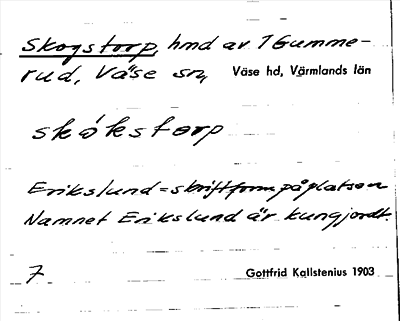 Skogstorp, hmd av 1 Gumme-
rud, Väse sn, Väse hd, Värmlands län
skókstorp
Erikslund = skriftform på platsen
Namnet Erikslund är kungjordt.
7 Gottfrid Kallstenius 1903